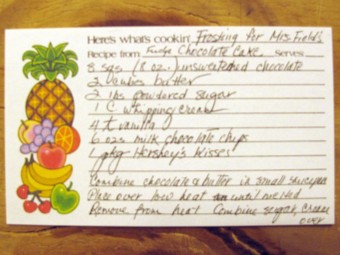 Here's what's cookin' Frosting for Mrs. Field's
Recipe from Fudge Chocolate Cake Serves
8 sqs (8 oz.) unsweetened chocolate
2 cubes butter
2 lbs powdered sugar
1 C whipping cream
4 t vanilla
6 ozs milk chocolate chips
1 pkg Hershey's Kisses
Combine chocolate & butter in small saucepan
Place over low heat until melted
Remove from heat. Combine sugar, cream
over